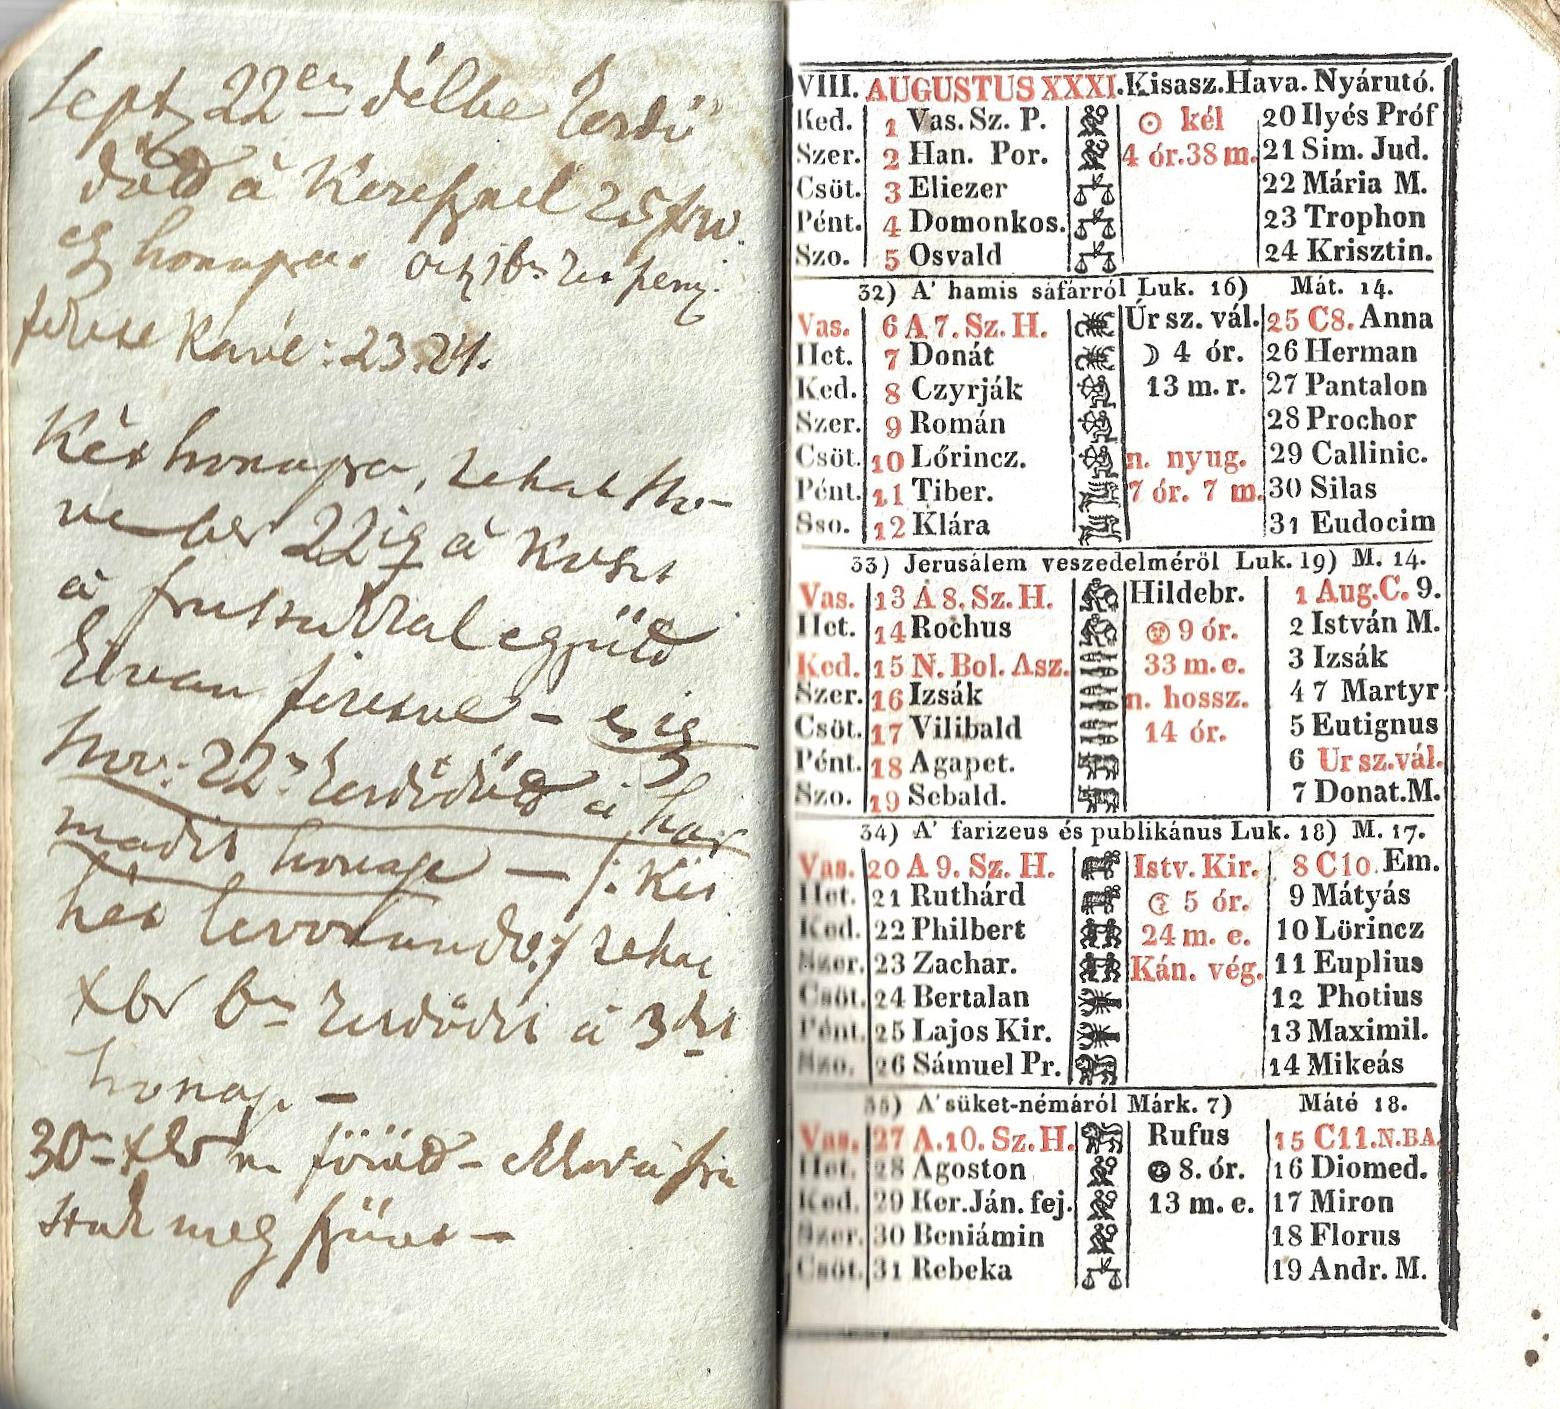 Sept 22en délbe
à 25 frt
eg honapra
Kávé: 23.24.
Két honapra, tehat No-
vember 22ig à Koszt
à frustukkal együtt
Elvan fizetve - es ig
Nov: 22n à har
madik honap - /:
tehat
xbr 6n à 3dik
honap. -
30n xbr
stuk meg szünt -
VIII. AUGUSTUS XXXI. Kisasz. Hava. Nyárutó.
Ked. 1 Vas. Sz. P. ☉ kél 20 Ilyés Próf
Szer. 2 Han. Por. 4 ór. 38 m. 21 Sim. Jud.
Csöt. 3 Eliezer 22 Mária M.
Pént. 4 Domonkos. 23 Trophon
Szo. 5 Osvald 24 Krisztin.
32) A' hamis sáfárról Luk. 16) Mát. 14.
Vas. 6 A 7. Sz. H. Úr sz. vál. 25 C8. Anna
Het. 7 Donát ☽ 4 ór. 26 Herman
Ked. 8 Czyrják 13 m. r. 27 Pantalon
Szer. 9 Román 28 Prochor
Csöt. 10 Lőrincz. n. nyug. 29 Callinic.
Pént. 11 Tiber. 7 ór. 7 m. 30 Silas
Sso. 12 Klára 31 Eudocim
33) Jerusálem veszedelméröl Luk. 19) M. 14.
Vas. 13 A 8. Sz. H. Hildebr. 1 Aug. C. 9.
Het. 14 Rochus 9 ór. 2 István M.
Ked. 15 N. Bol. Asz. 33 m. e. 3 Izsák
Szer. 16 Izsák n. hossz. 4 7 Martyr
Csöt. 17 Vilibald 14 ór. 5 Eutignus
Pént. 18 Agapet. 6 Ur sz. vál.
Szo. 19 Sebald. 7 Donat. M.
34) A' farizeus és publikánus Luk. 18) M. 17.
Vas. 20 A 9. Sz. H. Istv. Kir. 8 C10. Em.
Het. 21 Ruthárd 5 ór. 9 Mátyás
Ked. 22 Philbert 24 m. e. 10 Lörincz
Szer. 23 Zachar. Kán. vég. 11 Euplius
Csöt. 24 Bertalan 12 Photius
Pént. 25 Lajos Kir. 13 Maximil.
Szo. 26 Sámuel Pr. 14 Mikeás
35) A' süket-némáról Márk. 7) Máté 18.
Vas. 27 A. 10. Sz. H. Rufus 15 C11. N. BA.
Het. 28 Agoston 8. ór. 16 Diomed.
Ked. 29 Ker. Ján. fej. 13 m. e. 17 Miron
Szer. 30 Beniámin 18 Florus
Csöt. 31 Rebeka 19 Andr. M.